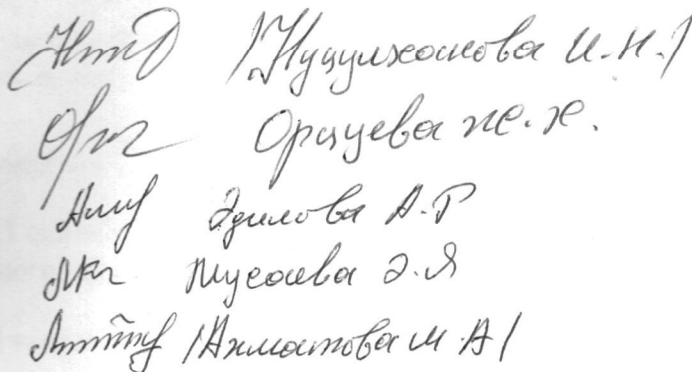 /Нуцулханова И.Н./
Орцуева Ж.Х.
Эдилова А.Р
Мусаева Э.Я
/Ахматова М.А/